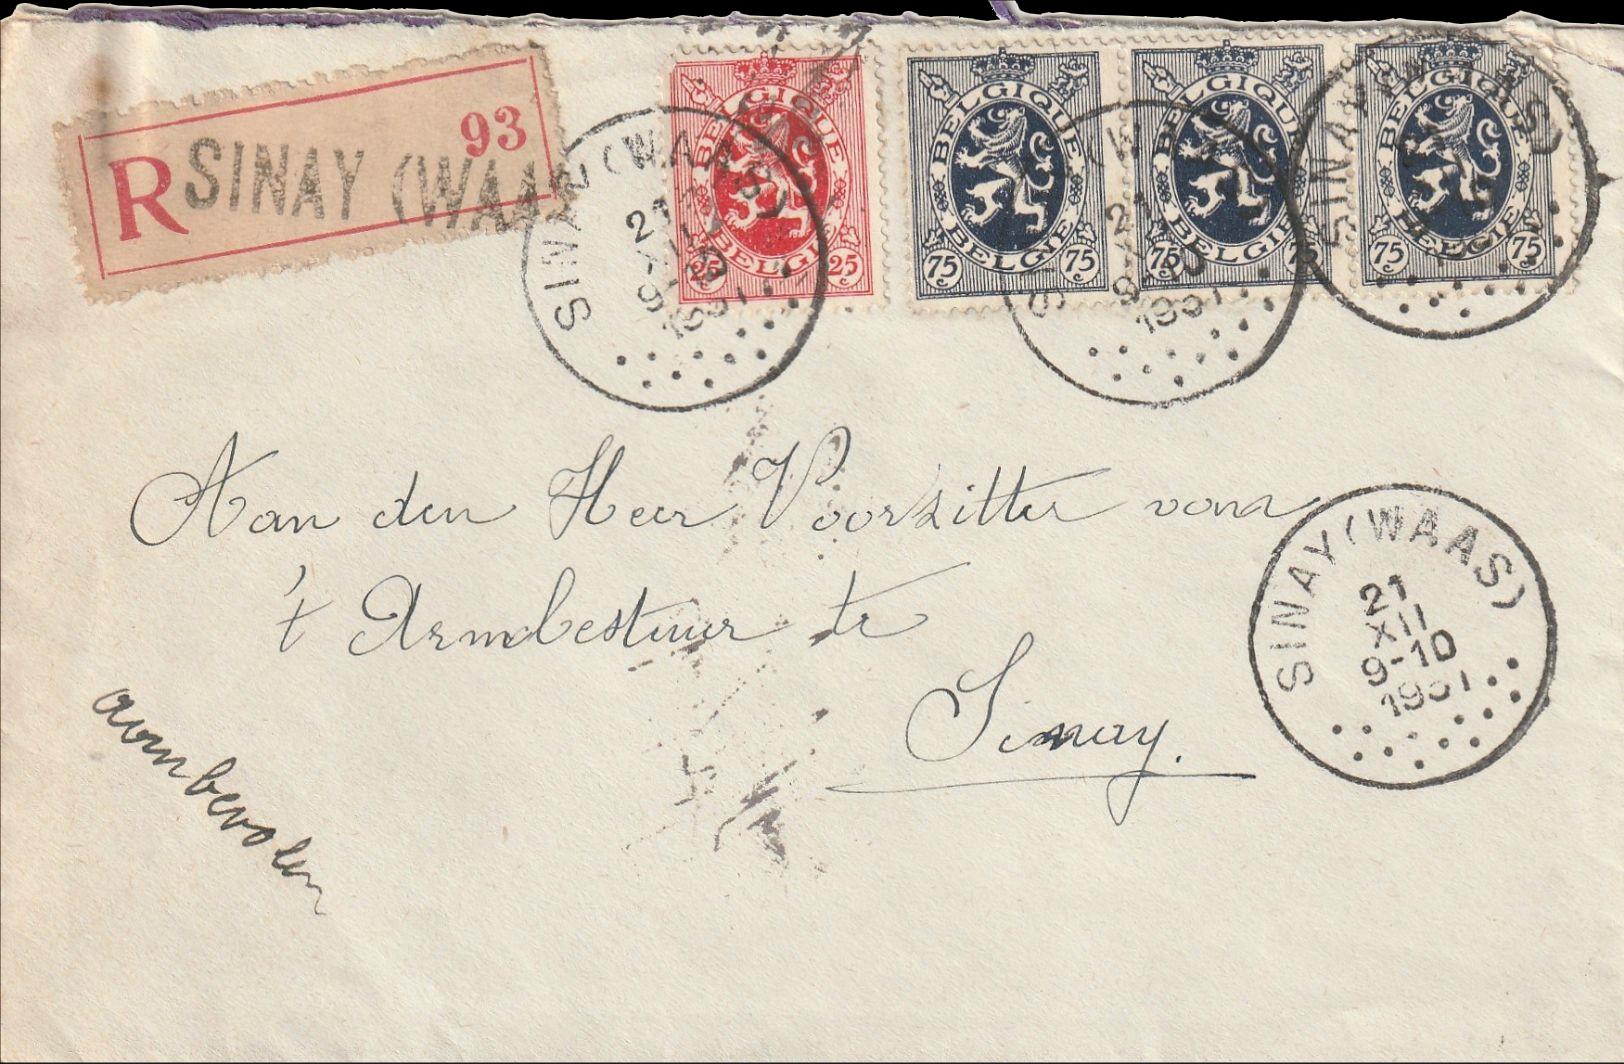 93
R SINAY (WAAS
BELGIQUE
BELGIE
25 25
BELGIQUE
BELGIE
75 75
BELGIQUE
BELGIE
75 75
BELGIQUE
BELGIE
75 75
SINAY (WAAS)
21
XII
9-10
1931
SINAY (WAAS)
21
XII
9-10
1931
SINAY (WAAS)
Aan den Heer Voorzitter van
't Armbestuur te
Sinay.
aanbevolen
SINAY (WAAS)
21
XII
9-10
1931